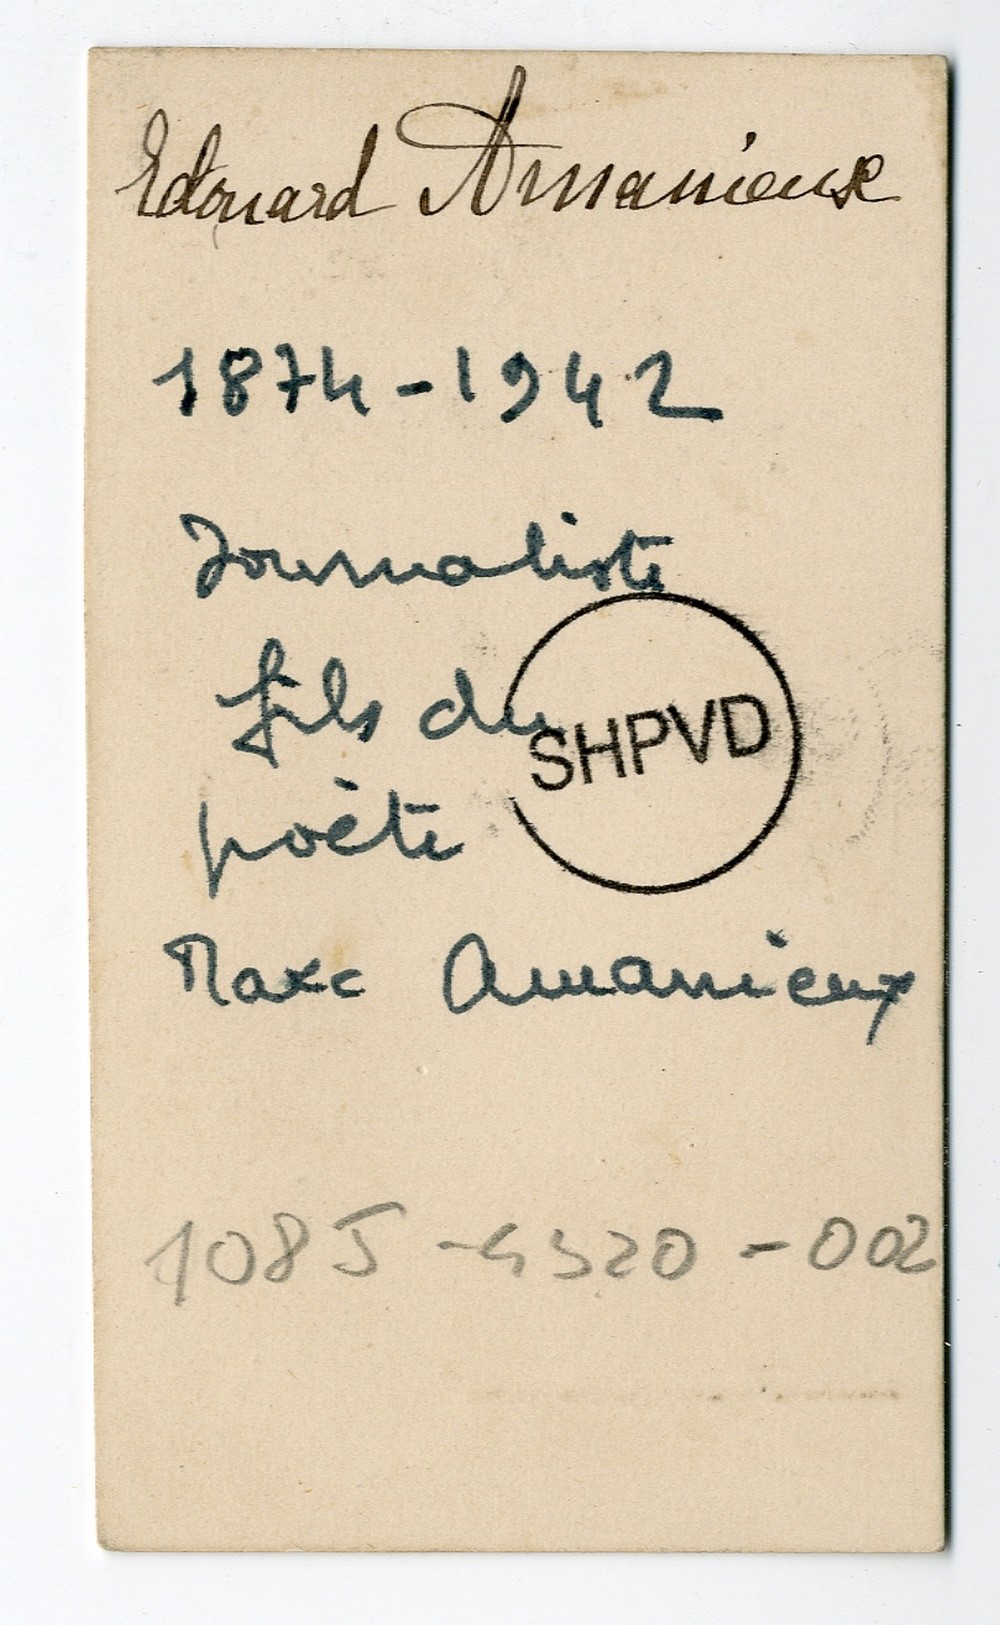 Edouard Amanieux
1874-1942
Journaliste
fils du
SHPVD
poète
Marc Amanieux
108J-4320-002